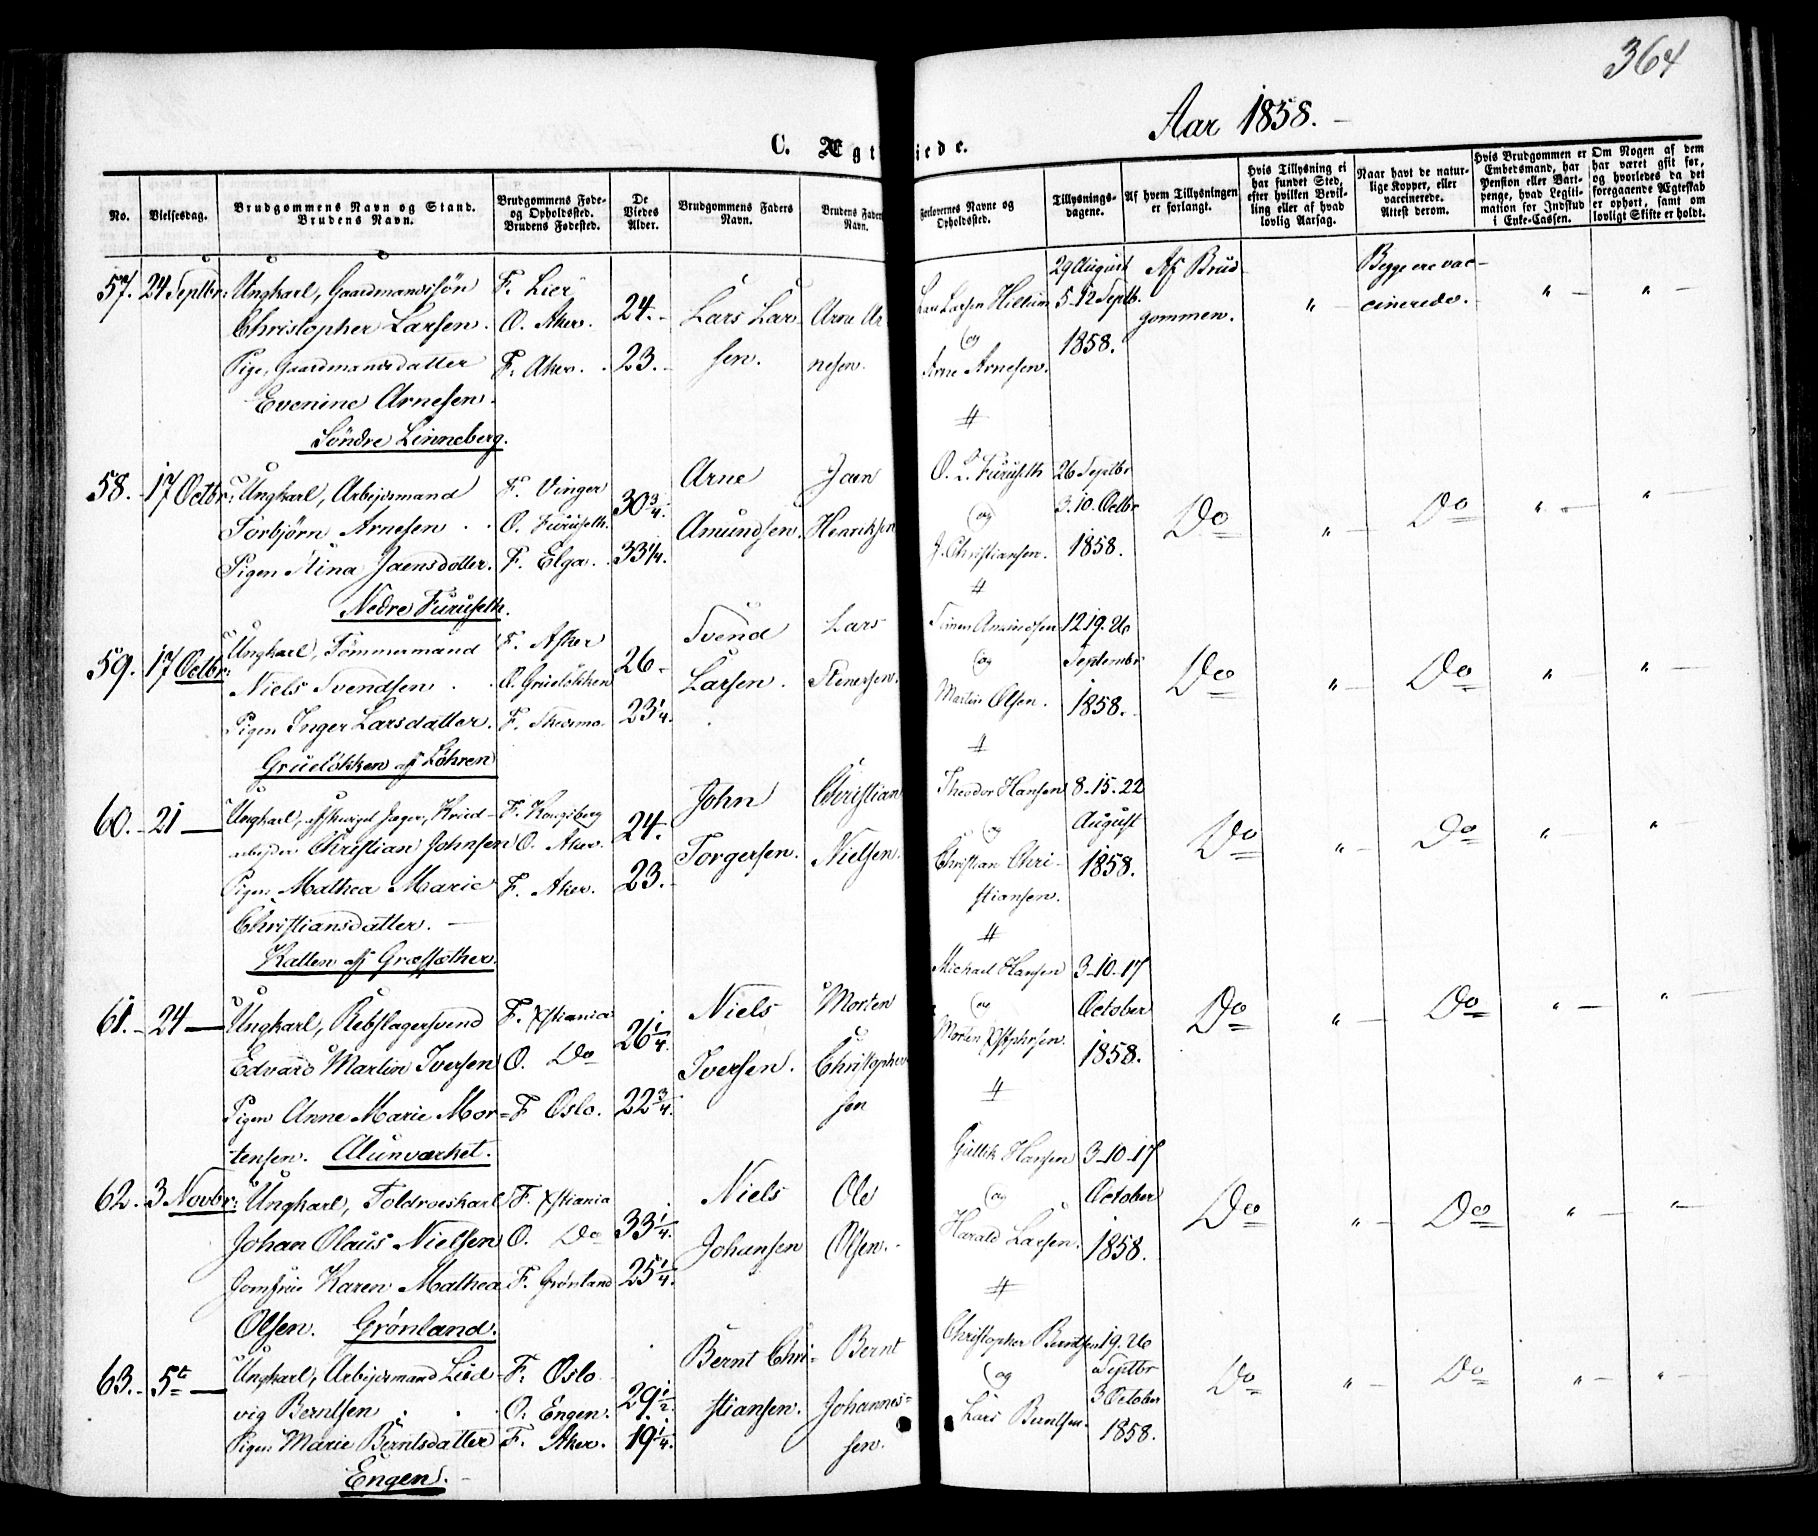 364
Aar 1858.
C. Ægteviede.
No.
Vielsesdag.
Brudgommens Navn og Stand.
Brudens Navn.
Brudgommens Føde-
og Opholdsted.
Brudens Fødested.
De
Viedes
Alder.
Brudgommens Faders
Navn.
Brudens Faders
Navn.
Forlovernes Navne og
Opholdsted.
Tillysnings-
dagene.
Af hvem Tillysningen
er forlangt.
Hvis Tillysning ei
har fundet Sted,
efter hvilken Bevil-
ling eller af hvad
lovlig Aarsag.
Naar havt de natur-
lige Kopper, eller
vaccinerede.
Attest derom.
Hvis Brudgommen er
Embedsmand, har
Pension eller Vart-
penge, hvad Legiti-
mation for Indskud
i Enke-Cassen.
Om Nogen af dem
har været gift før,
og hvorledes da det
foregaaende Ægteskab
er ophørt, samt om
lovligt Skifte er holdt.
57. 24 Septbr:
Ungkarl, Gaardmandssøn
Christopher Larsen.
Pige, Gaardmandsdatter
Evenine Arnesen.
Søndre Linneberg.
F. Lier
O. Aker.
F. Aker.
24.
23.
Lars Lar
sen.
Arne Ar
nesen.
Lars Larsen Hellum
og
Arne Arnesen.
29 August
5-12 Septb.
1858.
Af Brud-
gommen.
"
Begge ere vac-
cinerede.
"
"
58. 17 Octbr:
Ungkarl, Arbejdsmand
Torbjørn Arnesen
Pigen Stina Jaensdatter.
Nedre Furuseth.
F. Vinger
O. Furuseth.
F. Elga.
30 3/4.
33 1/4.
Arne
Amundsen.
Jaen
Henriksen
O. L. Furuseth
og
J. Christiansen.
26 Septbr
3. 10. Octbr
1858.
Do
"
Do
"
"
59. 17 Octbr:
Ungkarl, Tømmermand
Niels Svendsen
Pigen Inger Larsdatter.
Grueløkken af Løhren
F. Asker
O. Grueløkken
26
23 1/4.
Svend
Larsen.
Lars
Stenersen.
Amundsen
og
Martin Olsen.
12 19. 26
Septembr
1858.
Do
"
Do
"
"
60. 21
Ungkarl, afskediget Jæger, Krud-
arbejder Christian Johnsen
Pigen Mathea Marie
Christiansdatter.
Kalten af Græfsæther.
F. Kongsberg
O. Aker.
F. Aker.
24.
23.
John
Torgersen.
Christian
Nielsen.
Theodor Hansen
og
Christian Chri-
stiansen.
8-15-22
August
1858.
Do
"
Do
"
"
61. 24
Ungkarl, Rebslagersvend
Edvard Martin Iversen
Pigen Anne Marie Mor-
tensen. Alunværket.
F. Xstiania
O. Do
F. Oslo.
26 1/4.
22 3/4.
Niels
Iversen.
Morten
Christopher
sen
Michael Hansen
og
Morten Xstphrsen.
3-10-17
October
1858.
Do
"
Do
"
"
62. 3 Novbr:
Ungkarl, Toldroeskarl
Johan Olaus Nielsen
Jomfru Karen Mathea
Olsen. Grønland.
F. Xstiania
O. Do
F. Grønland
33 1/4.
25 1/4.
Niels
Johansen
Ole
Olsen.
Gullik Hansen
og
Harald Larsen.
3-10-17
October
1858.
Do
"
Do
"
"
63. 5te
Ungkarl, Arbejdsmand Lud-
vig Berntsen
Pigen Marie Berntsdatter
Engen.
F. Oslo
O. Engen.
F. Aker.
29 1/2.
19 1/4.
Bernt Chri-
stiansen.
Bernt
Johannes-
sen.
Christopher Berntsen
og
Lars Berntsen.
19. 26
Septbr
3 October
1858.
Do
"
Do
"
"